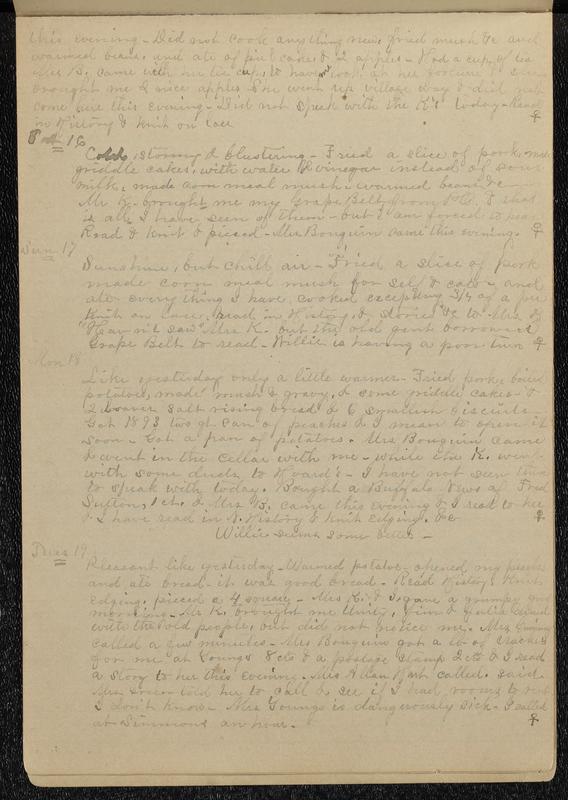 this evening - Did not cook anything new, fried mush &c and
warmed beans, and ate of pie cake & 2 apples - Had a cup of tea
Mrs B. came with her tea cup, to have me look at her fortune & she
brought me 2 nice apples She went up village day & did not
come here this evening - Did not speak with the K's today - Read
in History & knit on lace
Sat 16
Cold, stormy & blustering - Fried a slice of pork, made
griddle cakes, with water & vinegar instead of sour
milk, made corn meal mush, warmed beans &c
Mr K. brought me my Grape Belt from P.O. & that
is all I have seen of them - but I am forced to hear
Read & knit & pieced - Mrs Bouquin came this evening.
Sun 17
Sunshine, but chill air - Fried a slice of pork
made corn meal mush for self & cats - and
ate everything I have cooked excepting 3/4 of a pie
Knit on lace, read in History & stories &c to Mrs B
"Hav'nt saw" Mrs K. but the old gent borrowed
Grape Belt to read - Willie is having a poor turn
Mon 18
Like yesterday only a little warmer - Fried pork, boiled
potatoes, made mush & gravy, & some griddle cakes - &
2 loaves salt rising bread & 6 smallish biscuits -
Got 1893 two qt. can of peaches & I mean to open it
soon - Got a pan of potatoes. Mrs Bouquin came
& went in the cellar with me - while the K. went
with some ducks to Hoard's - I have not seen them
to speak with today. Bought a Buffalo News of Fred
Sutton, 1 ct. & Mrs B. came this evening & I read to her
& I have read in N. History & knit Edging, &c
Willie seems some better -
Tues 19
Pleasant like yesterday - Warmed potatoes, opened my peaches
and ate bread - it was good bread - Read History, Knit
Edging, pieced a 4 square - Mrs K. & I gave a grumpy good
morning - Mr K. brought me Unity, Jim & Julia
with the old people, but did not notice me. Mrs
called a few minutes - Mrs Bouquin got a lb of crackers
for me at Youngs 8 cts & a postage stamp 2 cts & I read
a story to her this evening. Mrs Allan Hart called. said
Mrs told her to call & see if I had rooms to rent
I don't know - Mrs Youngs is dangerously sick - I called
at Simmons an hour.